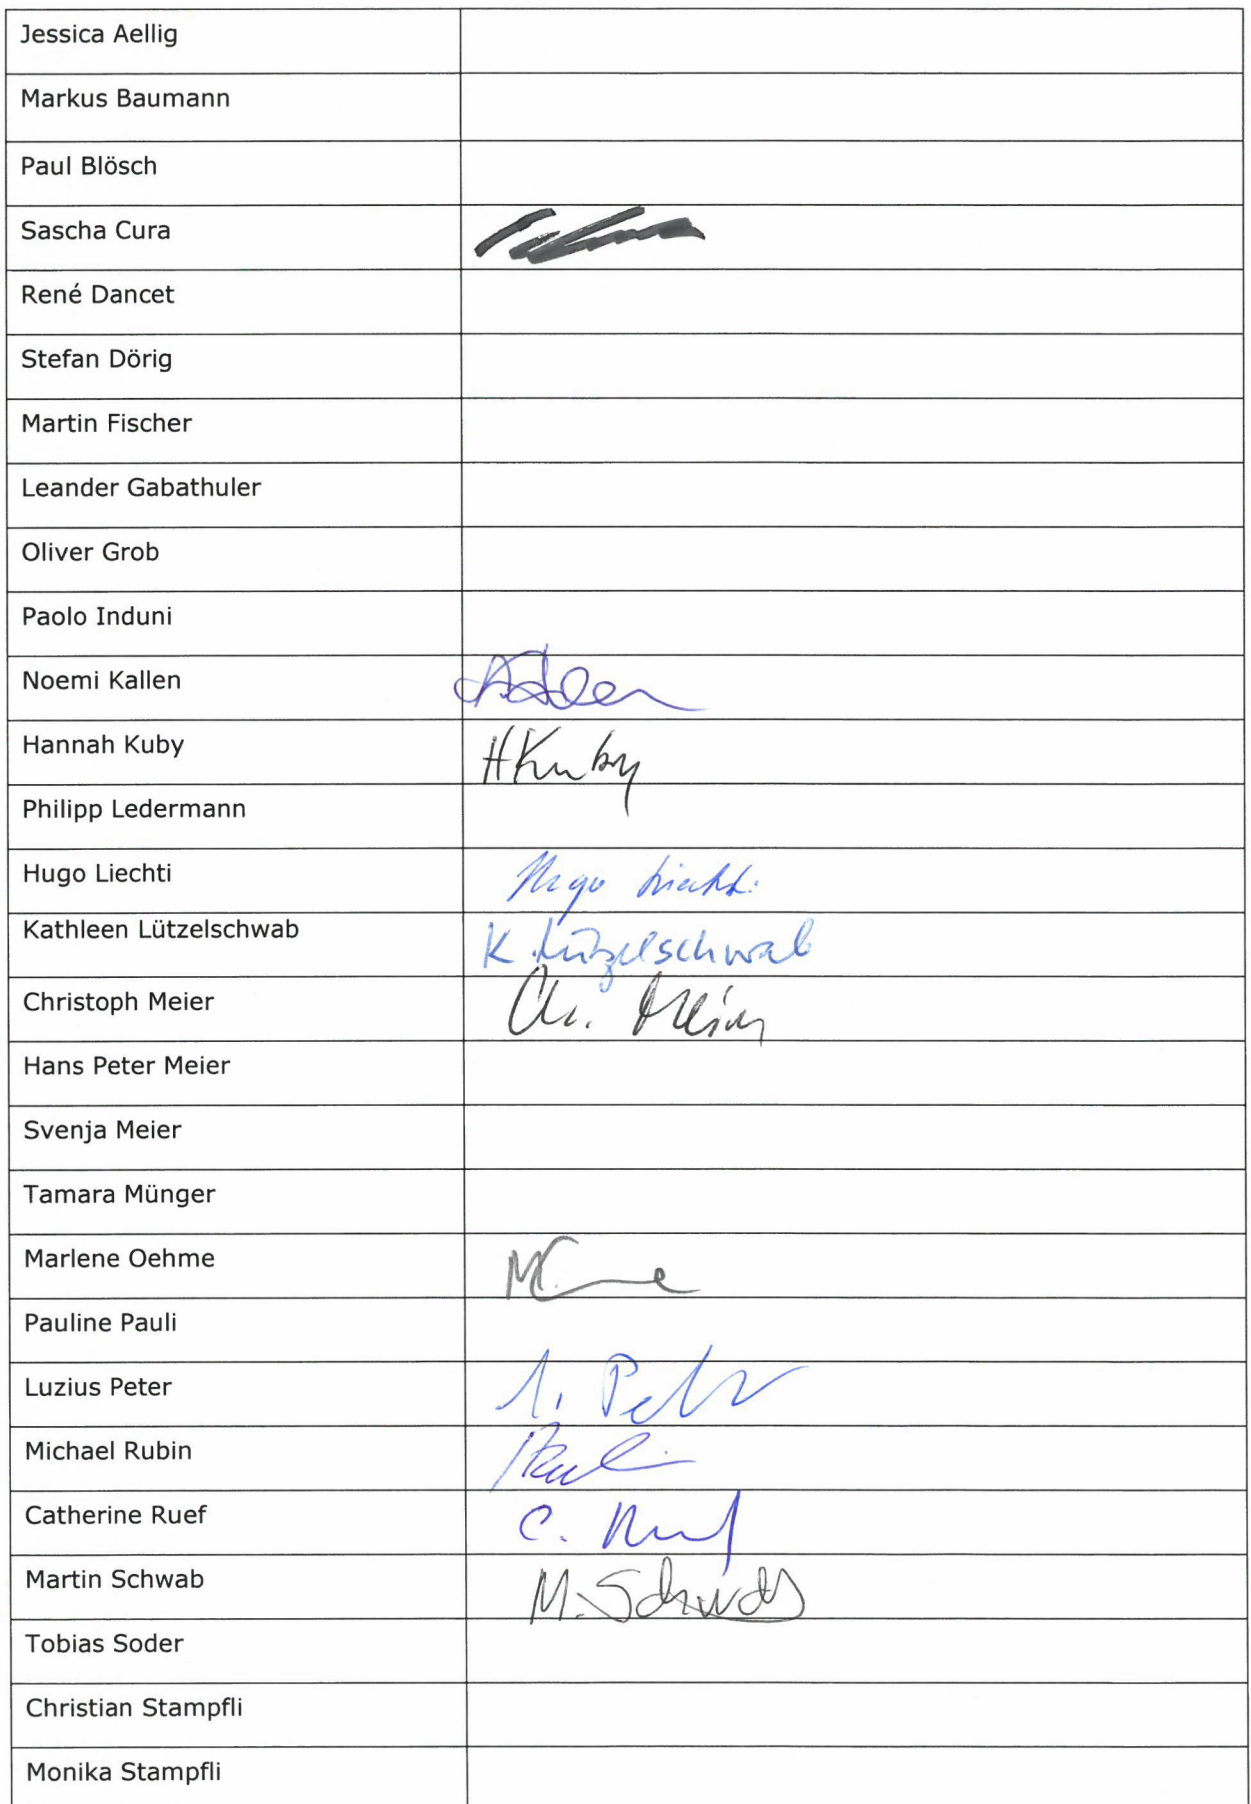 Jessica Aellig
Markus Baumann
Paul Blösch
Sascha Cura
René Dancet
Stefan Dörig
Martin Fischer
Leander Gabathuler
Oliver Grob
Paolo Induni
Noemi Kallen
Hannah Kuby HKuby
Philipp Ledermann
Hugo Liechti Hugo Liechti
Kathleen Lützelschwab K. Lützelschwab
Christoph Meier Ch. Meier
Hans Peter Meier
Svenja Meier
Tamara Münger
Marlene Oehme
Pauline Pauli
Luzius Peter L. Peter
Michael Rubin
Catherine Ruef C. Ruef
Martin Schwab M. Schwab
Tobias Soder
Christian Stampfli
Monika Stampfli